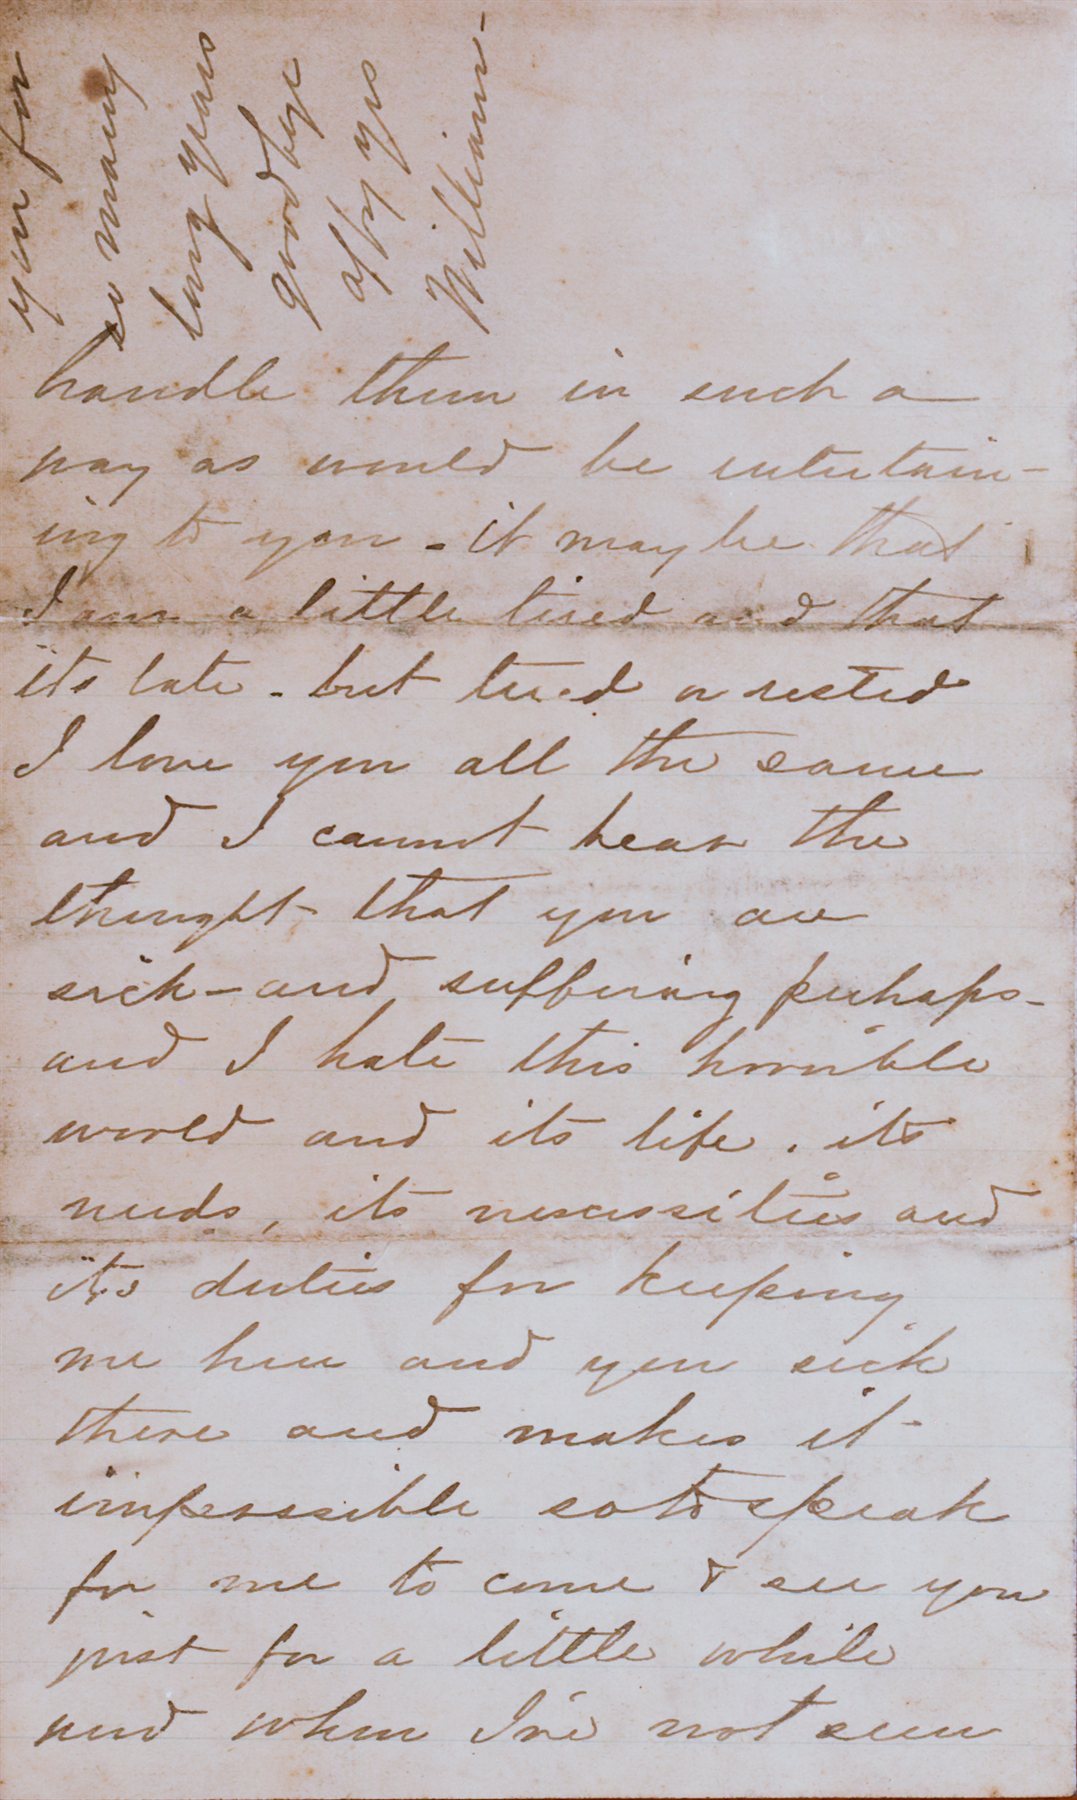 handle them in such a
way as would be entertain-
ing to you - it may be that
I am a little tired and that
its late - but tired or rested
I love you all the same
and I cannot bear the
thought that you are
sick - and suffering perhaps -
and I hate this horrible
world and its life, its
needs, its necessities and
its duties for keeping
me here and you sick
there and makes it
impossible so to speak
for me to come & see you
just for a little while
and when I've not seen
you for
so many
long years
good bye
affy yrs
William -